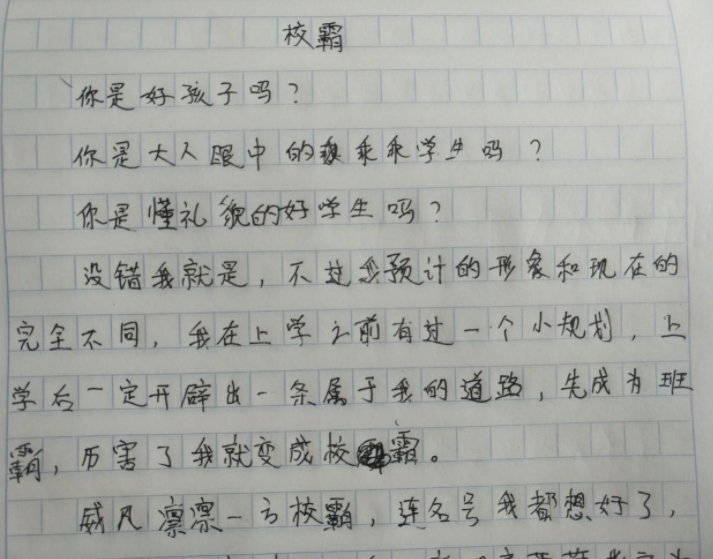 校霸
你是好孩子吗?
你是大人眼中的乖乖学生吗?
你是懂礼貌的好学生吗?
没错我就是,不过我预计的形象和现在的
完全不同,我在上学之前有过一个小规划,上
学后一定开辟出一条属于我的道路,先成为班
霸,厉害了我就变成校霸。
威风凛凛一方校霸,连名号我都想好了,